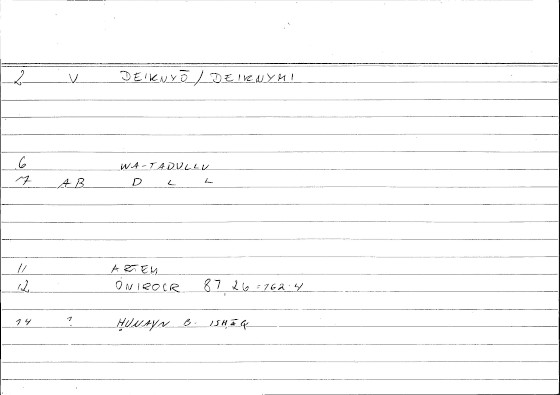 2 V DEIKNYŌ / DEIKNYMI
6 WA-TADULLU
7 AB D L L
11 ARTEM
12 ONIROCR 87,26 = 162.4
14 ? ḤUNAYN B. ISḤĀQ